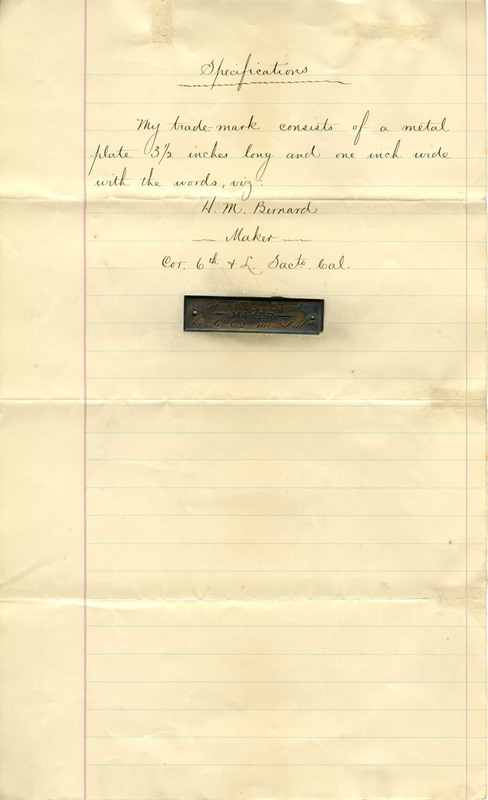 Specifications
My trade-mark consists of a metal
plate 3 1/2 inches long and one inch wide
with the words, viz:
H. M. Bernard
— Maker —
Cor. 6th & L. Sacto. Cal.
MAKER